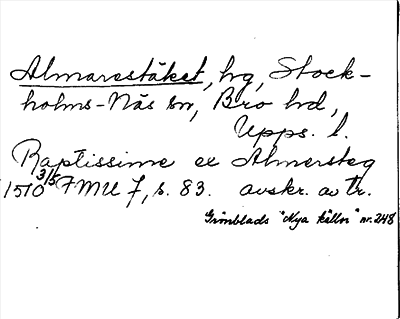 Almarestäket, hg, Stock-
holms-Näs sn, Bro hd,
Upps. l.
Raptissime ex Almersteg
1510 3/5 FMU 7, s. 83. avskr. av tr.
Grönblads "Nya källor" nr. 248